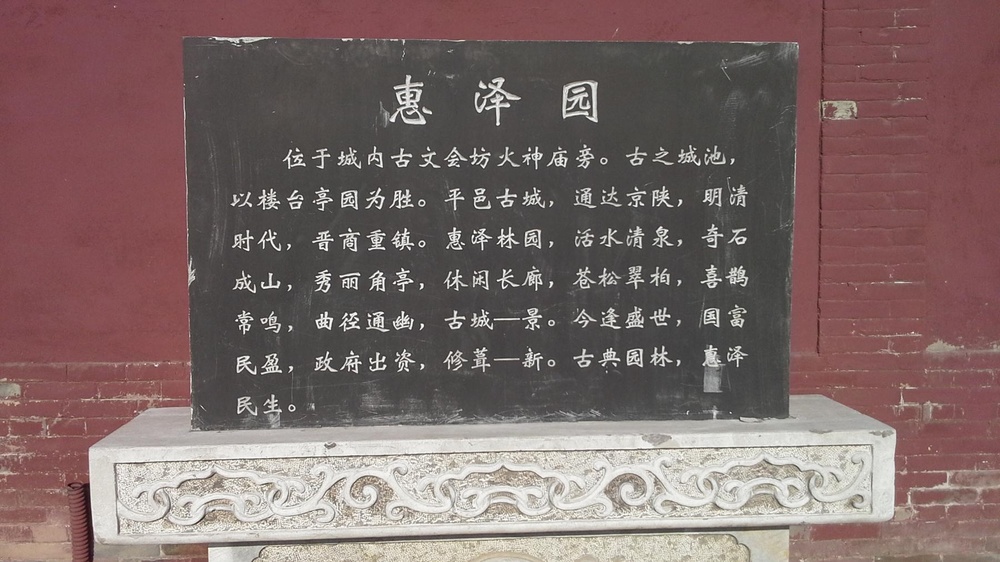 惠泽园
位于城内古文会坊火神庙旁。古之城池，
以楼台亭园为胜。平邑古城，通达京陕，明清
时代，晋商重镇。惠泽林园，活水清泉，奇石
成山，秀丽角亭，休闲长廊，苍松翠柏，喜鹊
常鸣，曲径通幽，古城一景。今逢盛世，国富
民盈，政府出资，修葺一新。古典园林，惠泽
民生。